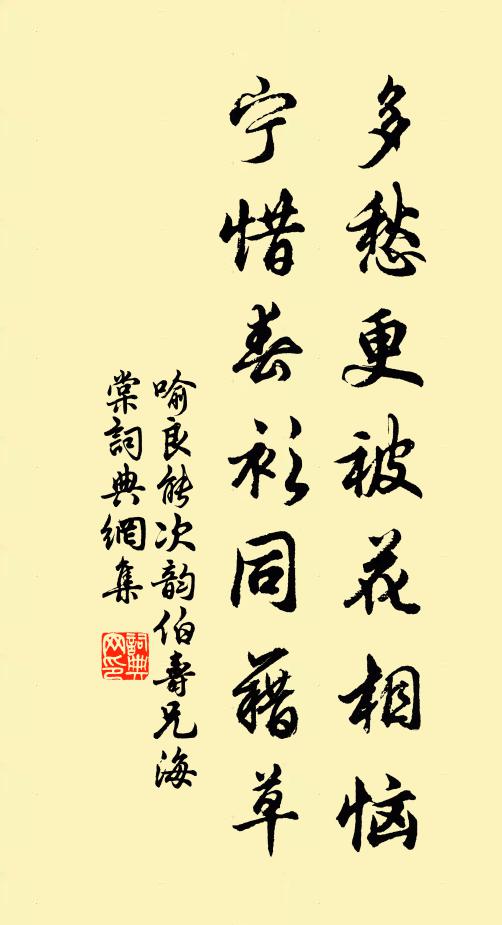 多愁更被花相恼
宁惜春衫同藉草
喻良能次韵伯壽兄海
棠詞典網集
詞典
网印